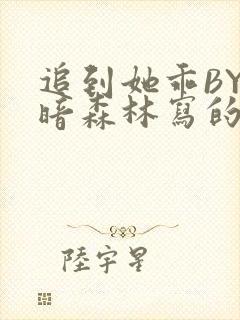 追到她乖BY
暗森林寫的
陸宇星